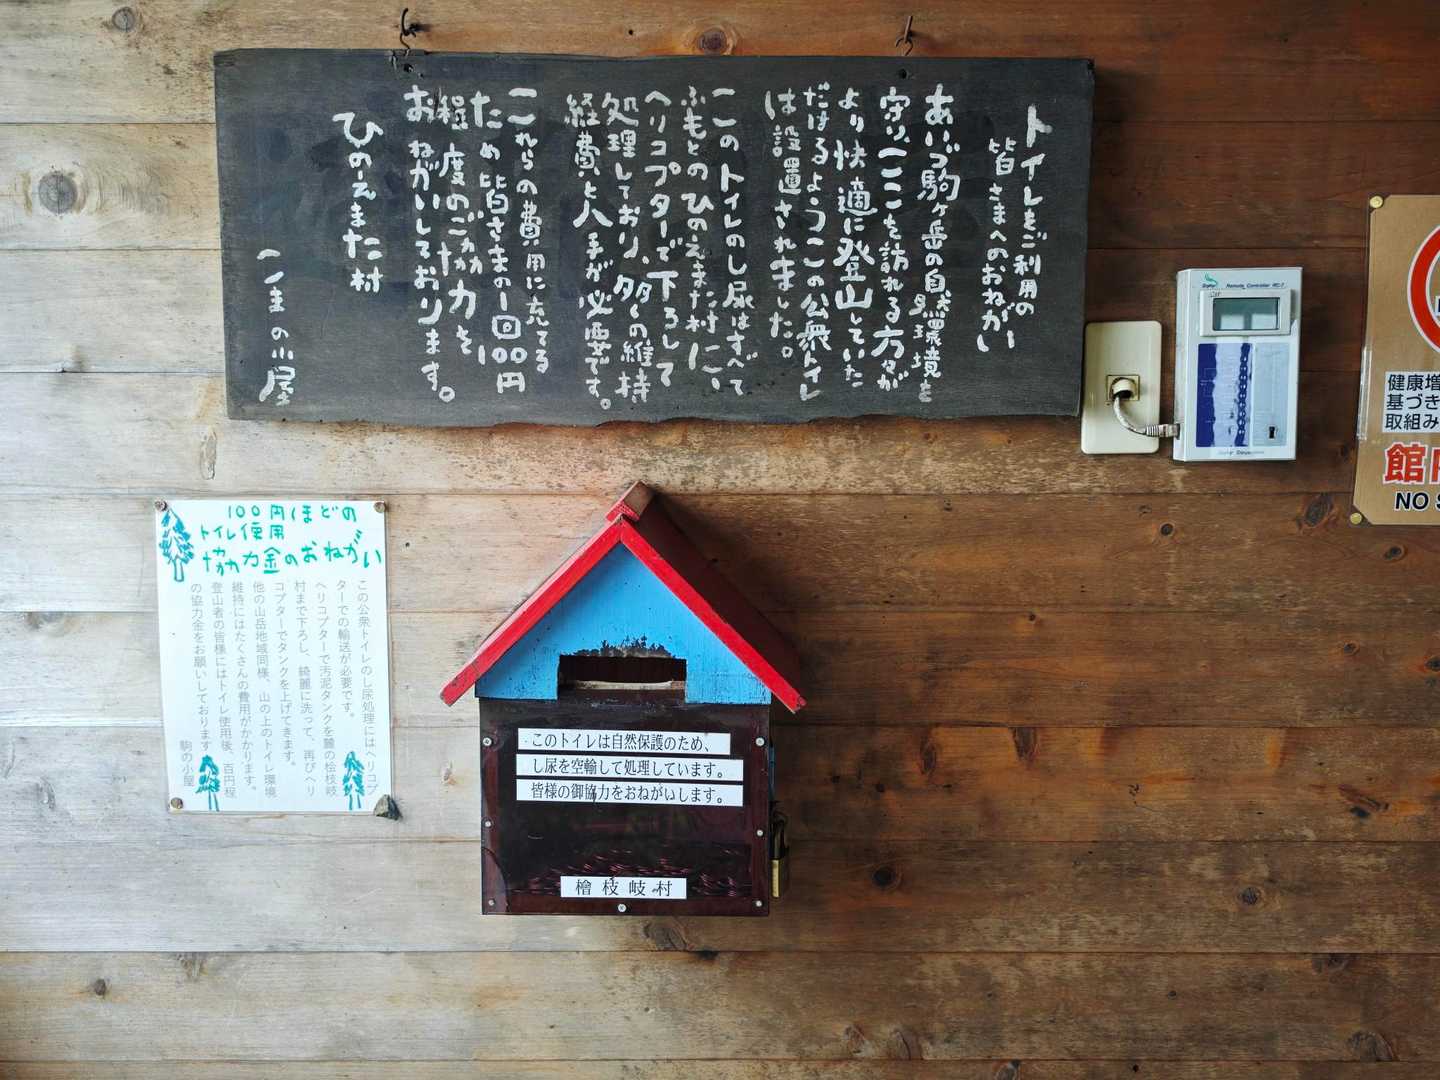 トイレをご利用の
皆さまへのおねがい
あいづ駒ヶ岳の自然環境を
守り、ここを訪れる方々が
より快適に登山していた
だけるようこの公衆トイレ
は設置されました。
このトイレのし尿はすべて
ふもとのひのえまた村に、
ヘリコプターで下ろして
処理しており、多くの維持
経費と人手が必要です。
これらの費用に充てる
ため皆さまの一回100円
程度のご協力を
おねがいしております。
ひのえまた村
こまの小屋
100円ほどの
トイレ使用
協力金のおねがい
この公衆トイレのし尿処理にはヘリコプ
ターでの輸送が必要です。
ヘリコプターで汚泥タンクを麓の桧枝岐
村まで下ろし、綺麗に洗って、再びヘリ
コプターでタンクを上げてきます。
他の山岳地域同様、山の上のトイレ環境
維持にはたくさんの費用がかかります。
登山者の皆様にはトイレ使用後、百円程
の協力金をお願いしております
駒の小屋
このトイレは自然保護のため、
し尿を空輸して処理しています。
皆様の御協力をおねがいします。
檜枝岐村
Remote Controller RC-7
健康増
基づき
取組み
館内
NO S